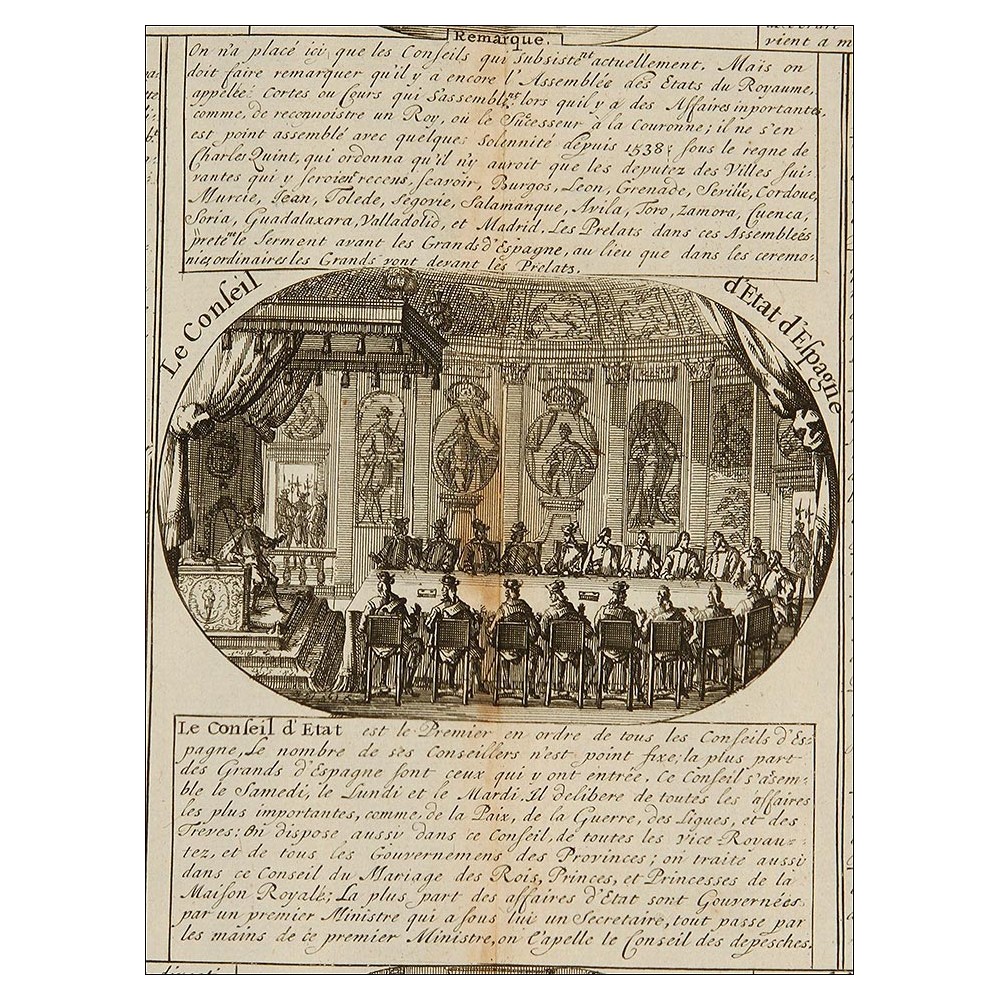 Remarque.
vient a m
On n'a placé icy que les Conſeils qui subsistent actuellement. Mais on
doit faire remarquer qu'il y a encore l'Assemblée des Etats du Royaume,
appelée Cortes ou Cours qui s'assemblent lors qu'il y a des Affaires inportantes,
comme, de reconnoistre un Roy, ou le Sucesseur à la Couronne; il ne s'en
est point assemblé avec quelques Solennité depuis 1538; sous le regne de
Charles Quint, qui ordonna qu'il n'y auroit que les deputez des Villes sui-
vantes qui y seroient recens, scavoir, Burgos, Leon, Grenade, Seville, Cordoue,
Murcie, Jean, Tolede, Segovie, Salamanque, Avila, Toro, Zamora, Cuenca,
Soria, Guadalaxara, Valladolid, et Madrid. Les Prelats dans ces Assemblées
pretent le Serment avant les Grands d'Espagne, au lieu que dans les ceremo-
nies, ordinaires les Grands vont devant les Prelats.
Le Conſeil d'Etat d'Eſpagne
Le Conſeil d'Etat est le Premier en ordre de tous les Conſeils d'Es-
pagne, Le nombre de ses Conseillers n'est point fixe; la plus part
des Grands d'Espagne ſont ceux qui y ont entrée. Ce Conſeil s'asem-
ble le Samedi, le Lundi et le Mardi. Il delibere de toutes les affaires
les plus importantes, comme, de la Paix, de la Guerre, des Ligues, et des
Tréves: On dispose aussi dans ce Conſeil, de toutes les Vice Royau-
tez, et de tous les Gouvernemens des Provinces; on traite aussi
dans ce Conseil du Mariage des Rois, Princes, et Princesses de la
Maiſon Royale; La plus part des affaires d'Etat sont Gouvernées
par un premier Ministre qui a ſous lui un Secretaire, tout passe par
les mains de ce premier Ministre, on l'apelle le Conseil des depesches.